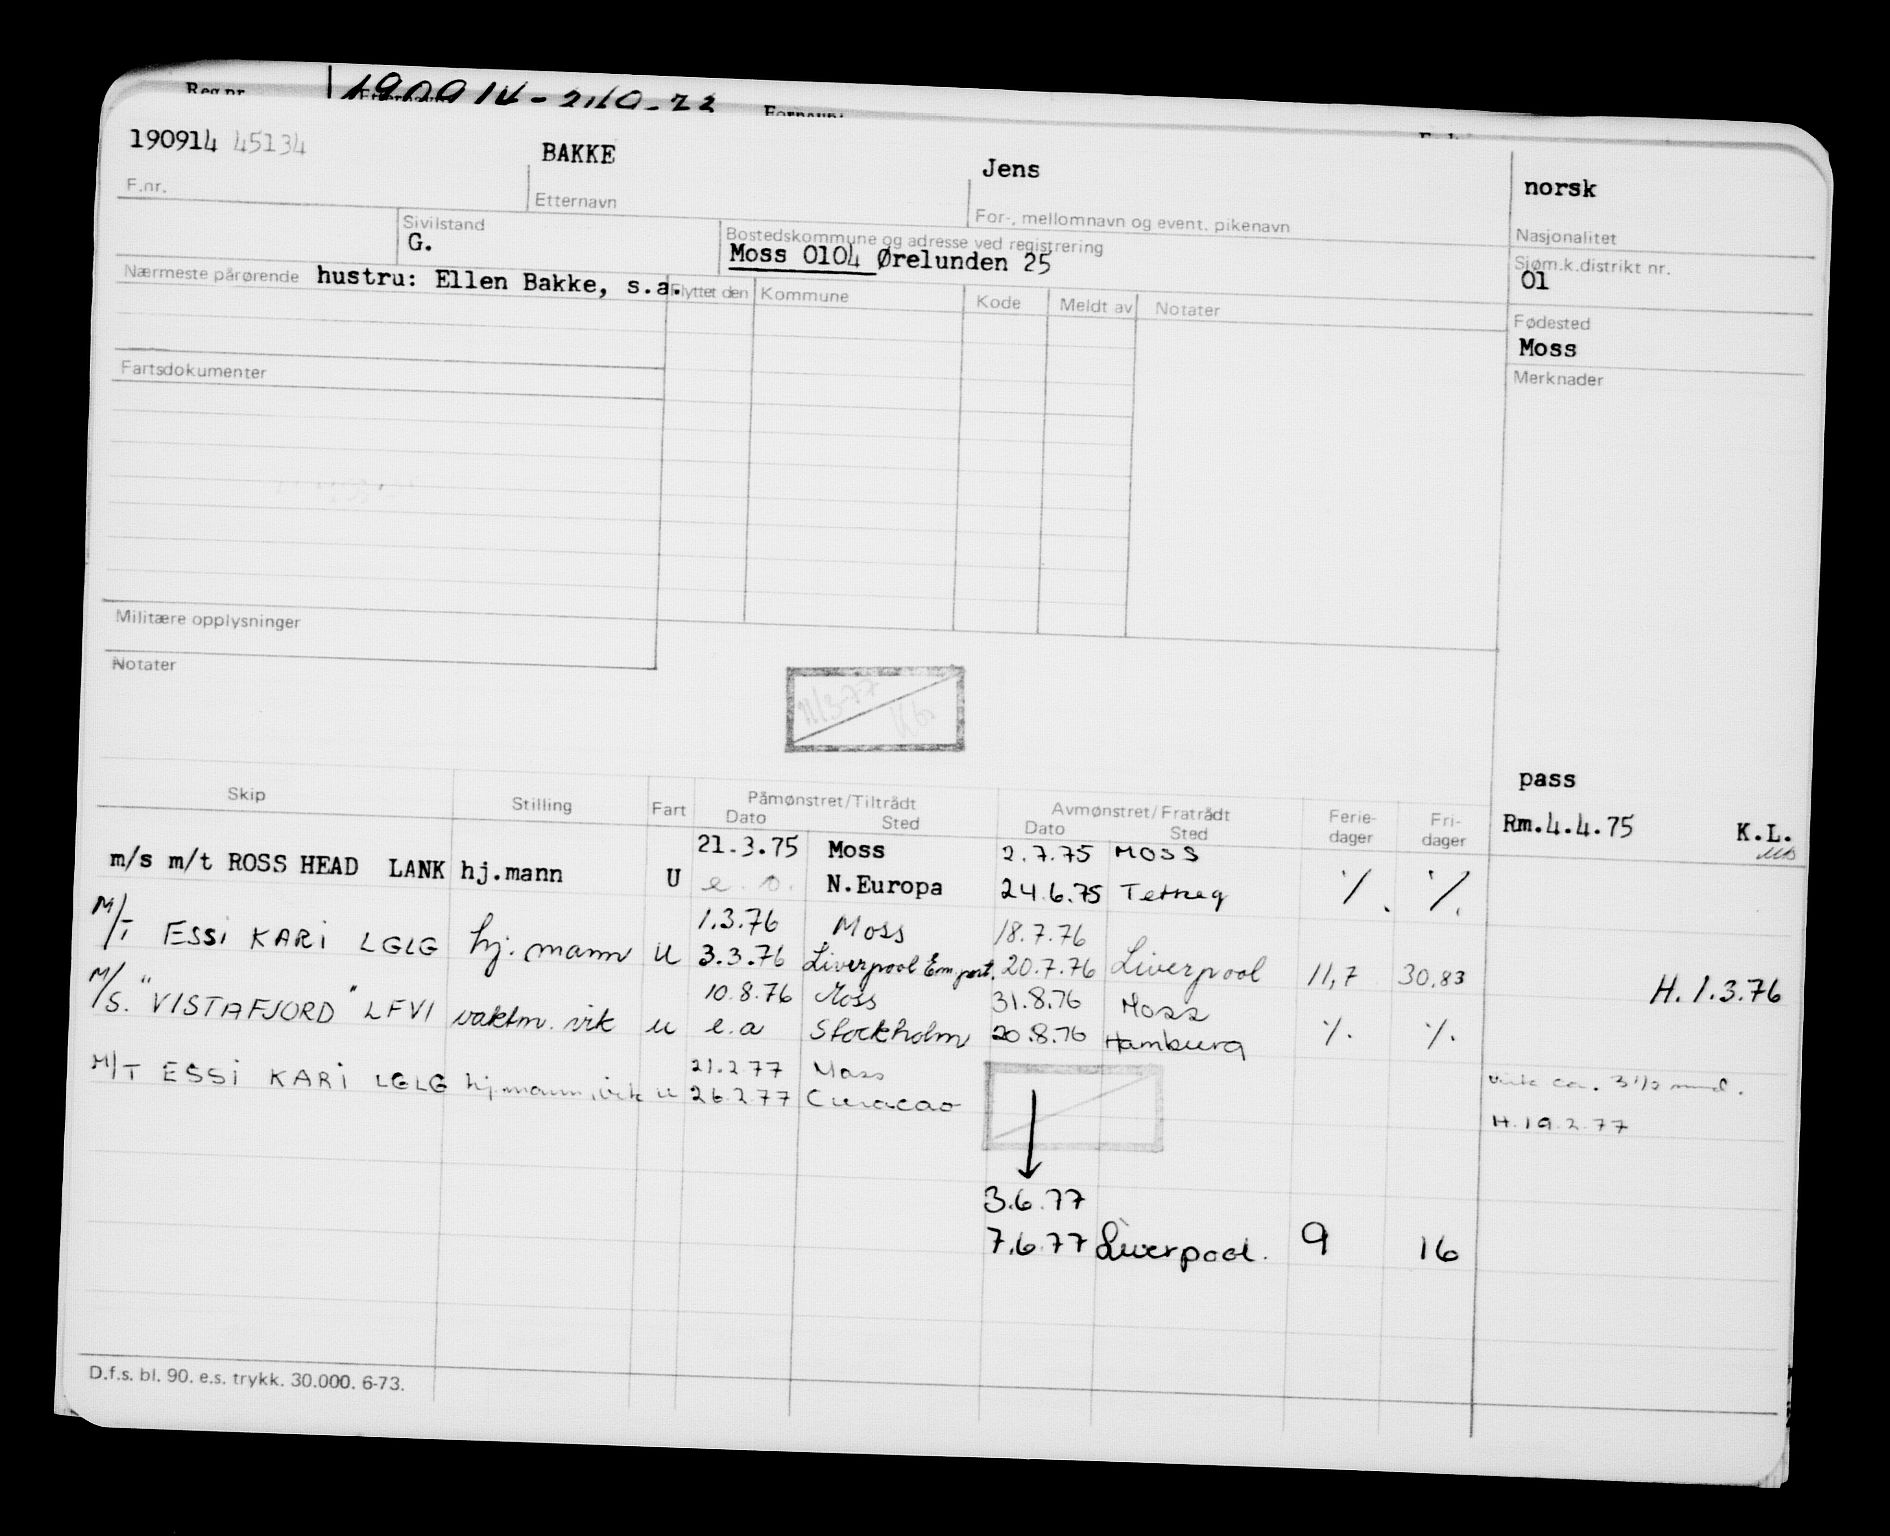 Reg.nr.
190914 45134
BAKKE
Jens
norsk
F.nr.
Etternavn
For-, mellomnavn og event. pikenavn
Nasjonalitet
Sivilstand
G.
Bostedskommune og adresse ved registrering
Moss 0104 Ørelunden 25
Sjøm.k.distrikt nr.
01
Nærmeste pårørende hustru: Ellen Bakke, s.a.
Flyttet den Kommune Kode Meldt av Notater
Fødested
Moss
Fartsdokumenter
Merknader
Militære opplysninger
Notater
11/3-77
pass
Skip Stilling Fart Påmønstret/Tiltrådt Avmønstret/Fratrådt Ferie- Fri-
Dato Sted Dato Sted dager dager
Rm.4.4.75 K.L.
21.3.75 Moss 2.7.75 MOSS
m/s m/t ROSS HEAD LANK hj.mann U e.o. N.Europa 24.6.75 ٪. ٪.
1.3.76 Moss 18.7.76
M/T ESSI KARI LGLG hj.mann U 3.3.76 Liverpool Em.port. 20.7.76 Liverpool 11,7 30,83
H. 1.3.76
10.8.76 Moss 31.8.76 Moss
M/S. "VISTAFJORD" LFVI vaktm. vik u e.a Stockholm 20.8.76 Hamburg ٪. ٪.
21.2.77 Moss
M/T ESSI KARI LGLG hj.mann, vik u 26.2.77 Curacao
vik ca. 3 1/2 mnd.
H.19.2.77
3.6.77
7.6.77 Liverpool. 9 16
D.f.s. bl. 90. e.s. trykk. 30.000. 6-73.